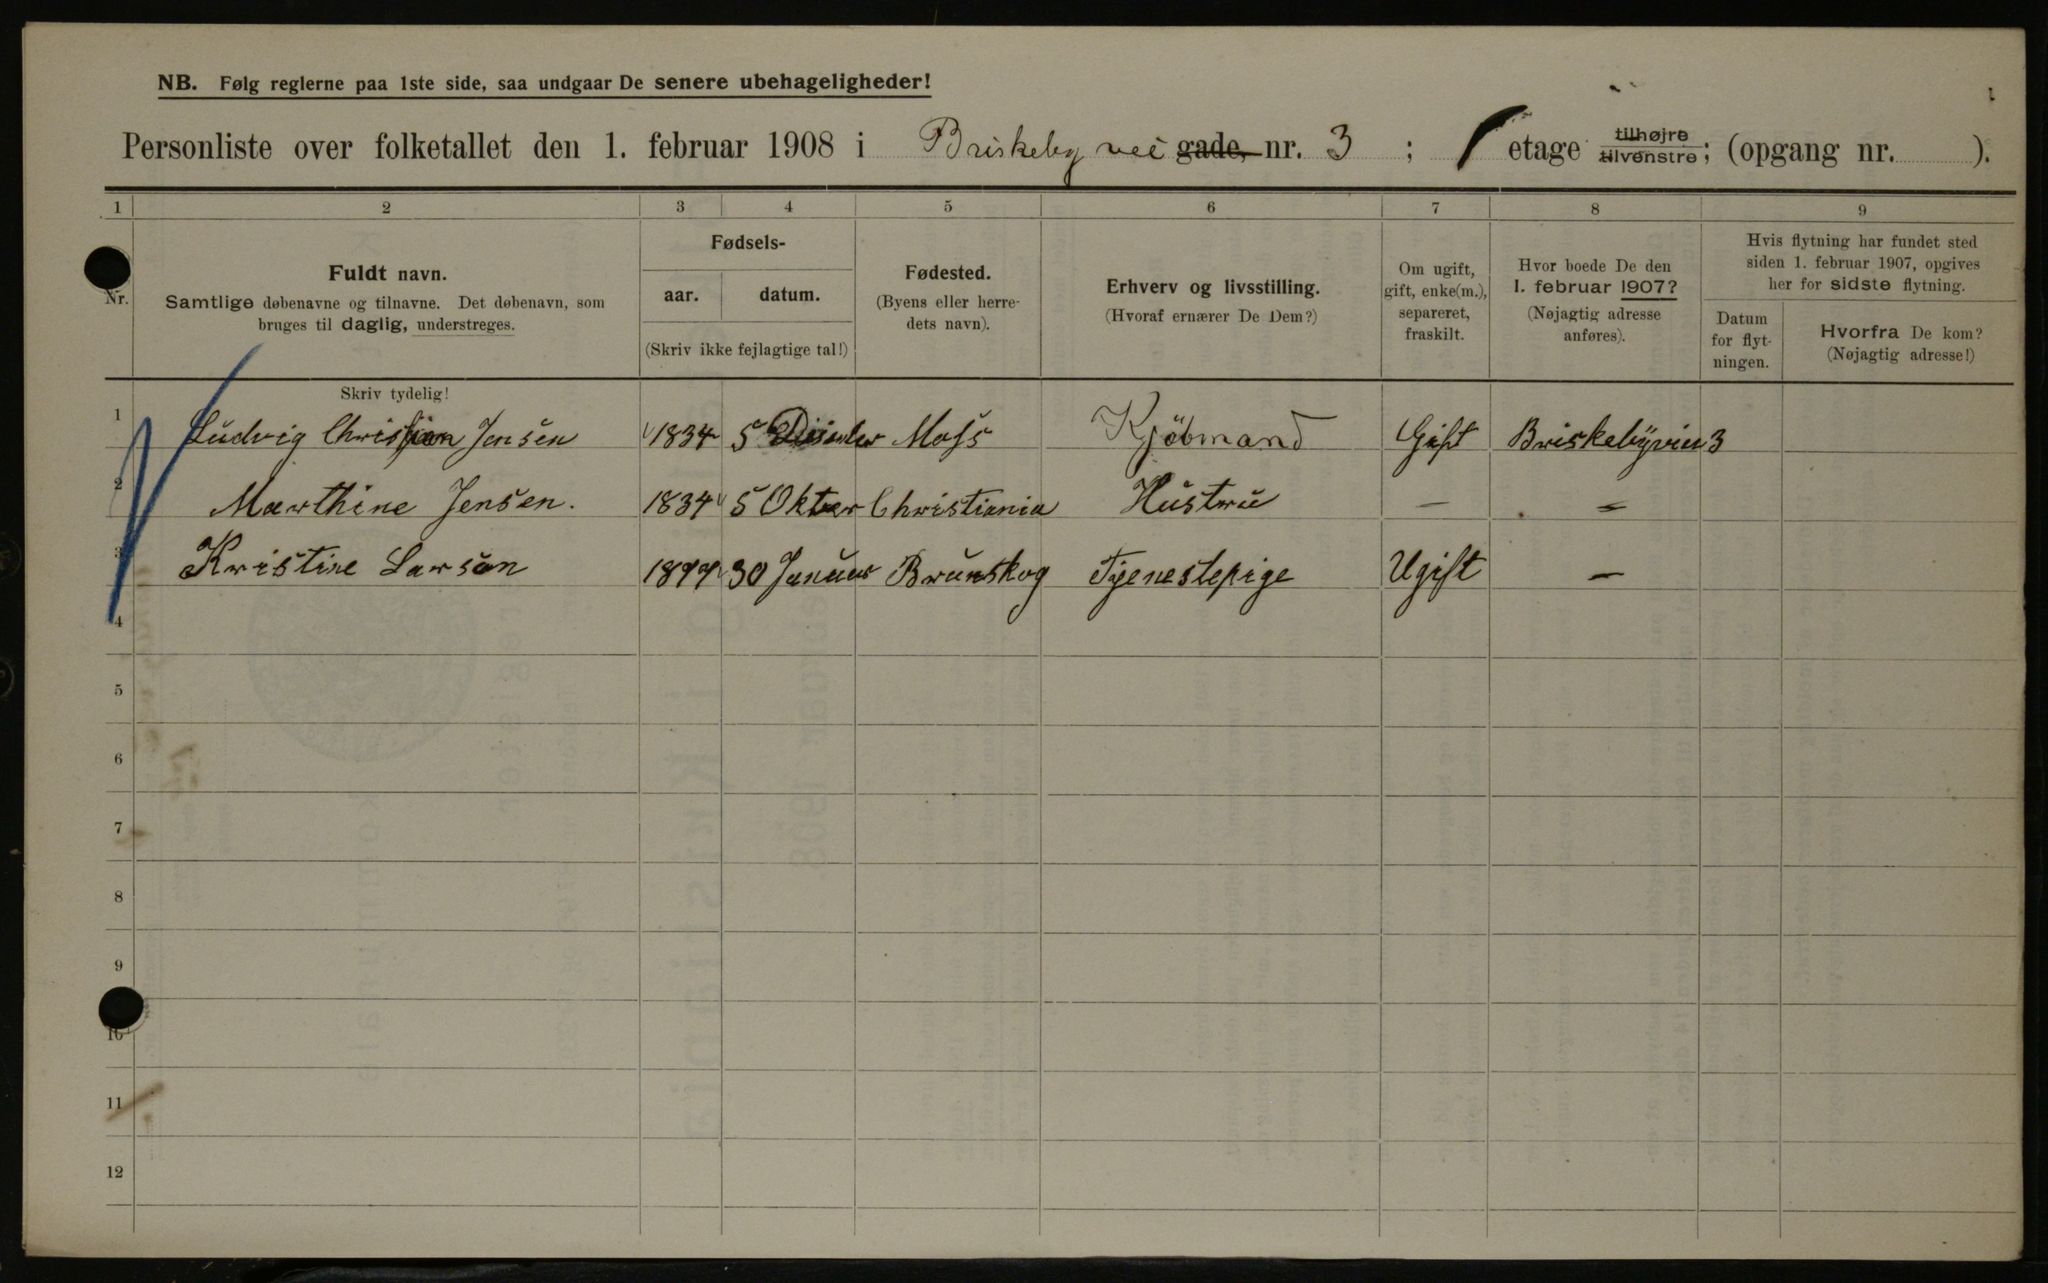 NB. Følg reglerne paa 1ste side, saa undgaar De senere ubehageligheder!
Personliste over folketallet den 1. februar 1908 i Briskeby vei gade, nr. 3 ; 1 etage tilhøjre tilvenstre; (opgang nr. ).
1 2 3 4 5 6 7 8 9
Nr.
Fuldt navn.
Samtlige døbenavne og tilnavne. Det døbenavn, som
bruges til daglig, understreges.
Skriv tydelig!
Fødsels-
aar. datum.
(Skriv ikke fejlagtige tal!)
Fødested.
(Byens eller herre-
dets navn).
Erhverv og livsstilling.
(Hvoraf ernærer De Dem?)
Om ugift,
gift, enke(m.),
separeret,
fraskilt.
Hvor boede De den
1. februar 1907?
(Nøjagtig adresse
anføres).
Hvis flytning har fundet sted
siden 1. februar 1907, opgives
her for sidste flytning.
Datum
for flyt-
ningen.
Hvorfra De kom?
(Nøjagtig adresse!)
1 Ludvig Christian Jensen 1834 5 Moss Kjöbmand Gift Briskebyvien 3
2 Marthine Jensen. 1834 5 Oktber Christiania Hustru — —
3 Kristine Larsen 1877 30 Januar Brunskog Tjenestepige Ugift —
4
5
6
7
8
9
10
11
12